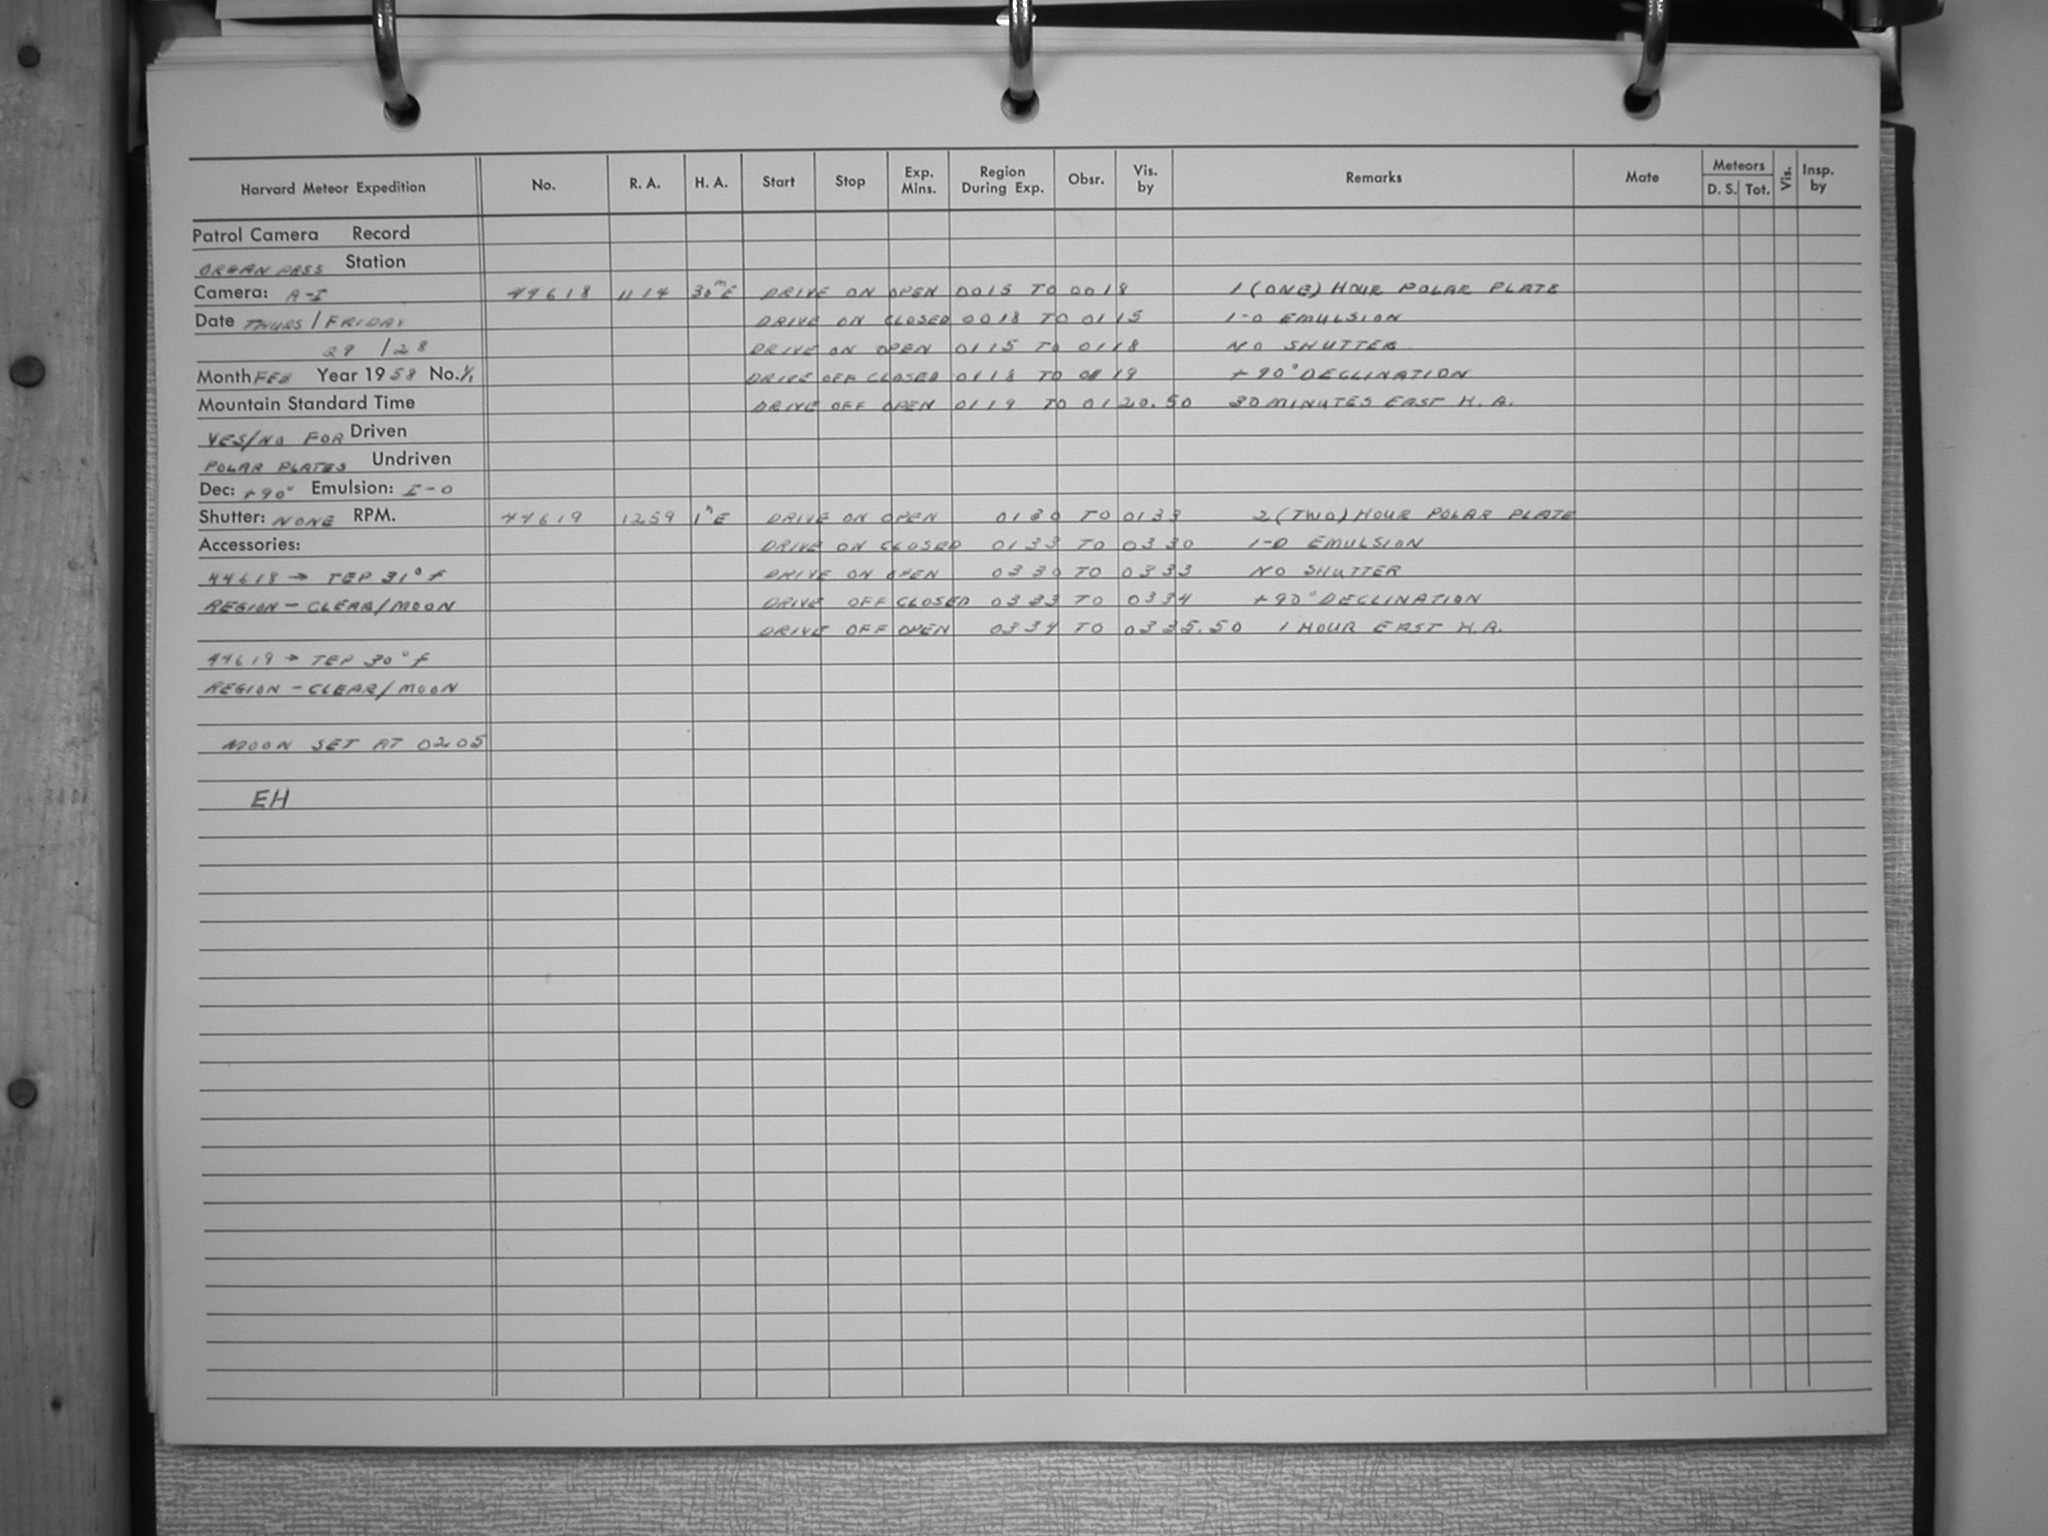 Harvard Meteor Expedition No. R. A. H. A. Start Stop Exp. Mins. Region During Exp. Obsr. Vis. by Remarks Mate Meteors D. S. Tot. Vis. Insp. by
Patrol Camera Record
ORGAN PASS Station
Camera: A-I 44618 1114 30ᵐE DRIVE ON OPEN 0015 TO 0018 1 (ONE) HOUR POLAR PLATE
Date THURS/FRIDAY DRIVE ON CLOSED 0018 TO 0115 1-O EMULSION
27 /28 DRIVE ON OPEN 0115 TO 0118 NO SHUTTER
Month FEB Year 1958 No. 1/1 DRIVE OFF CLOSED 0118 TO 0119 +90° DECLINATION
Mountain Standard Time DRIVE OFF OPEN 0119 TO 0120.50 30 MINUTES EAST H.A.
YES/NO FOR Driven
POLAR PLATES Undriven
Dec: +90° Emulsion: I-O
Shutter: NONE RPM. 44619 1259 1ʰE DRIVE ON OPEN 0130 TO 0133 2 (TWO) HOUR POLAR PLATE
Accessories: DRIVE ON CLOSED 0133 TO 0330 1-O EMULSION
44618 → TEP 31°F DRIVE ON OPEN 0330 TO 0333 NO SHUTTER
REGION - CLEAR/MOON DRIVE OFF CLOSED 0333 TO 0334 +90° DECLINATION
DRIVE OFF OPEN 0334 TO 0335.50 1 HOUR EAST H.A.
44619 → TEP 30°F
REGION - CLEAR/MOON
MOON SET AT 0205
EH